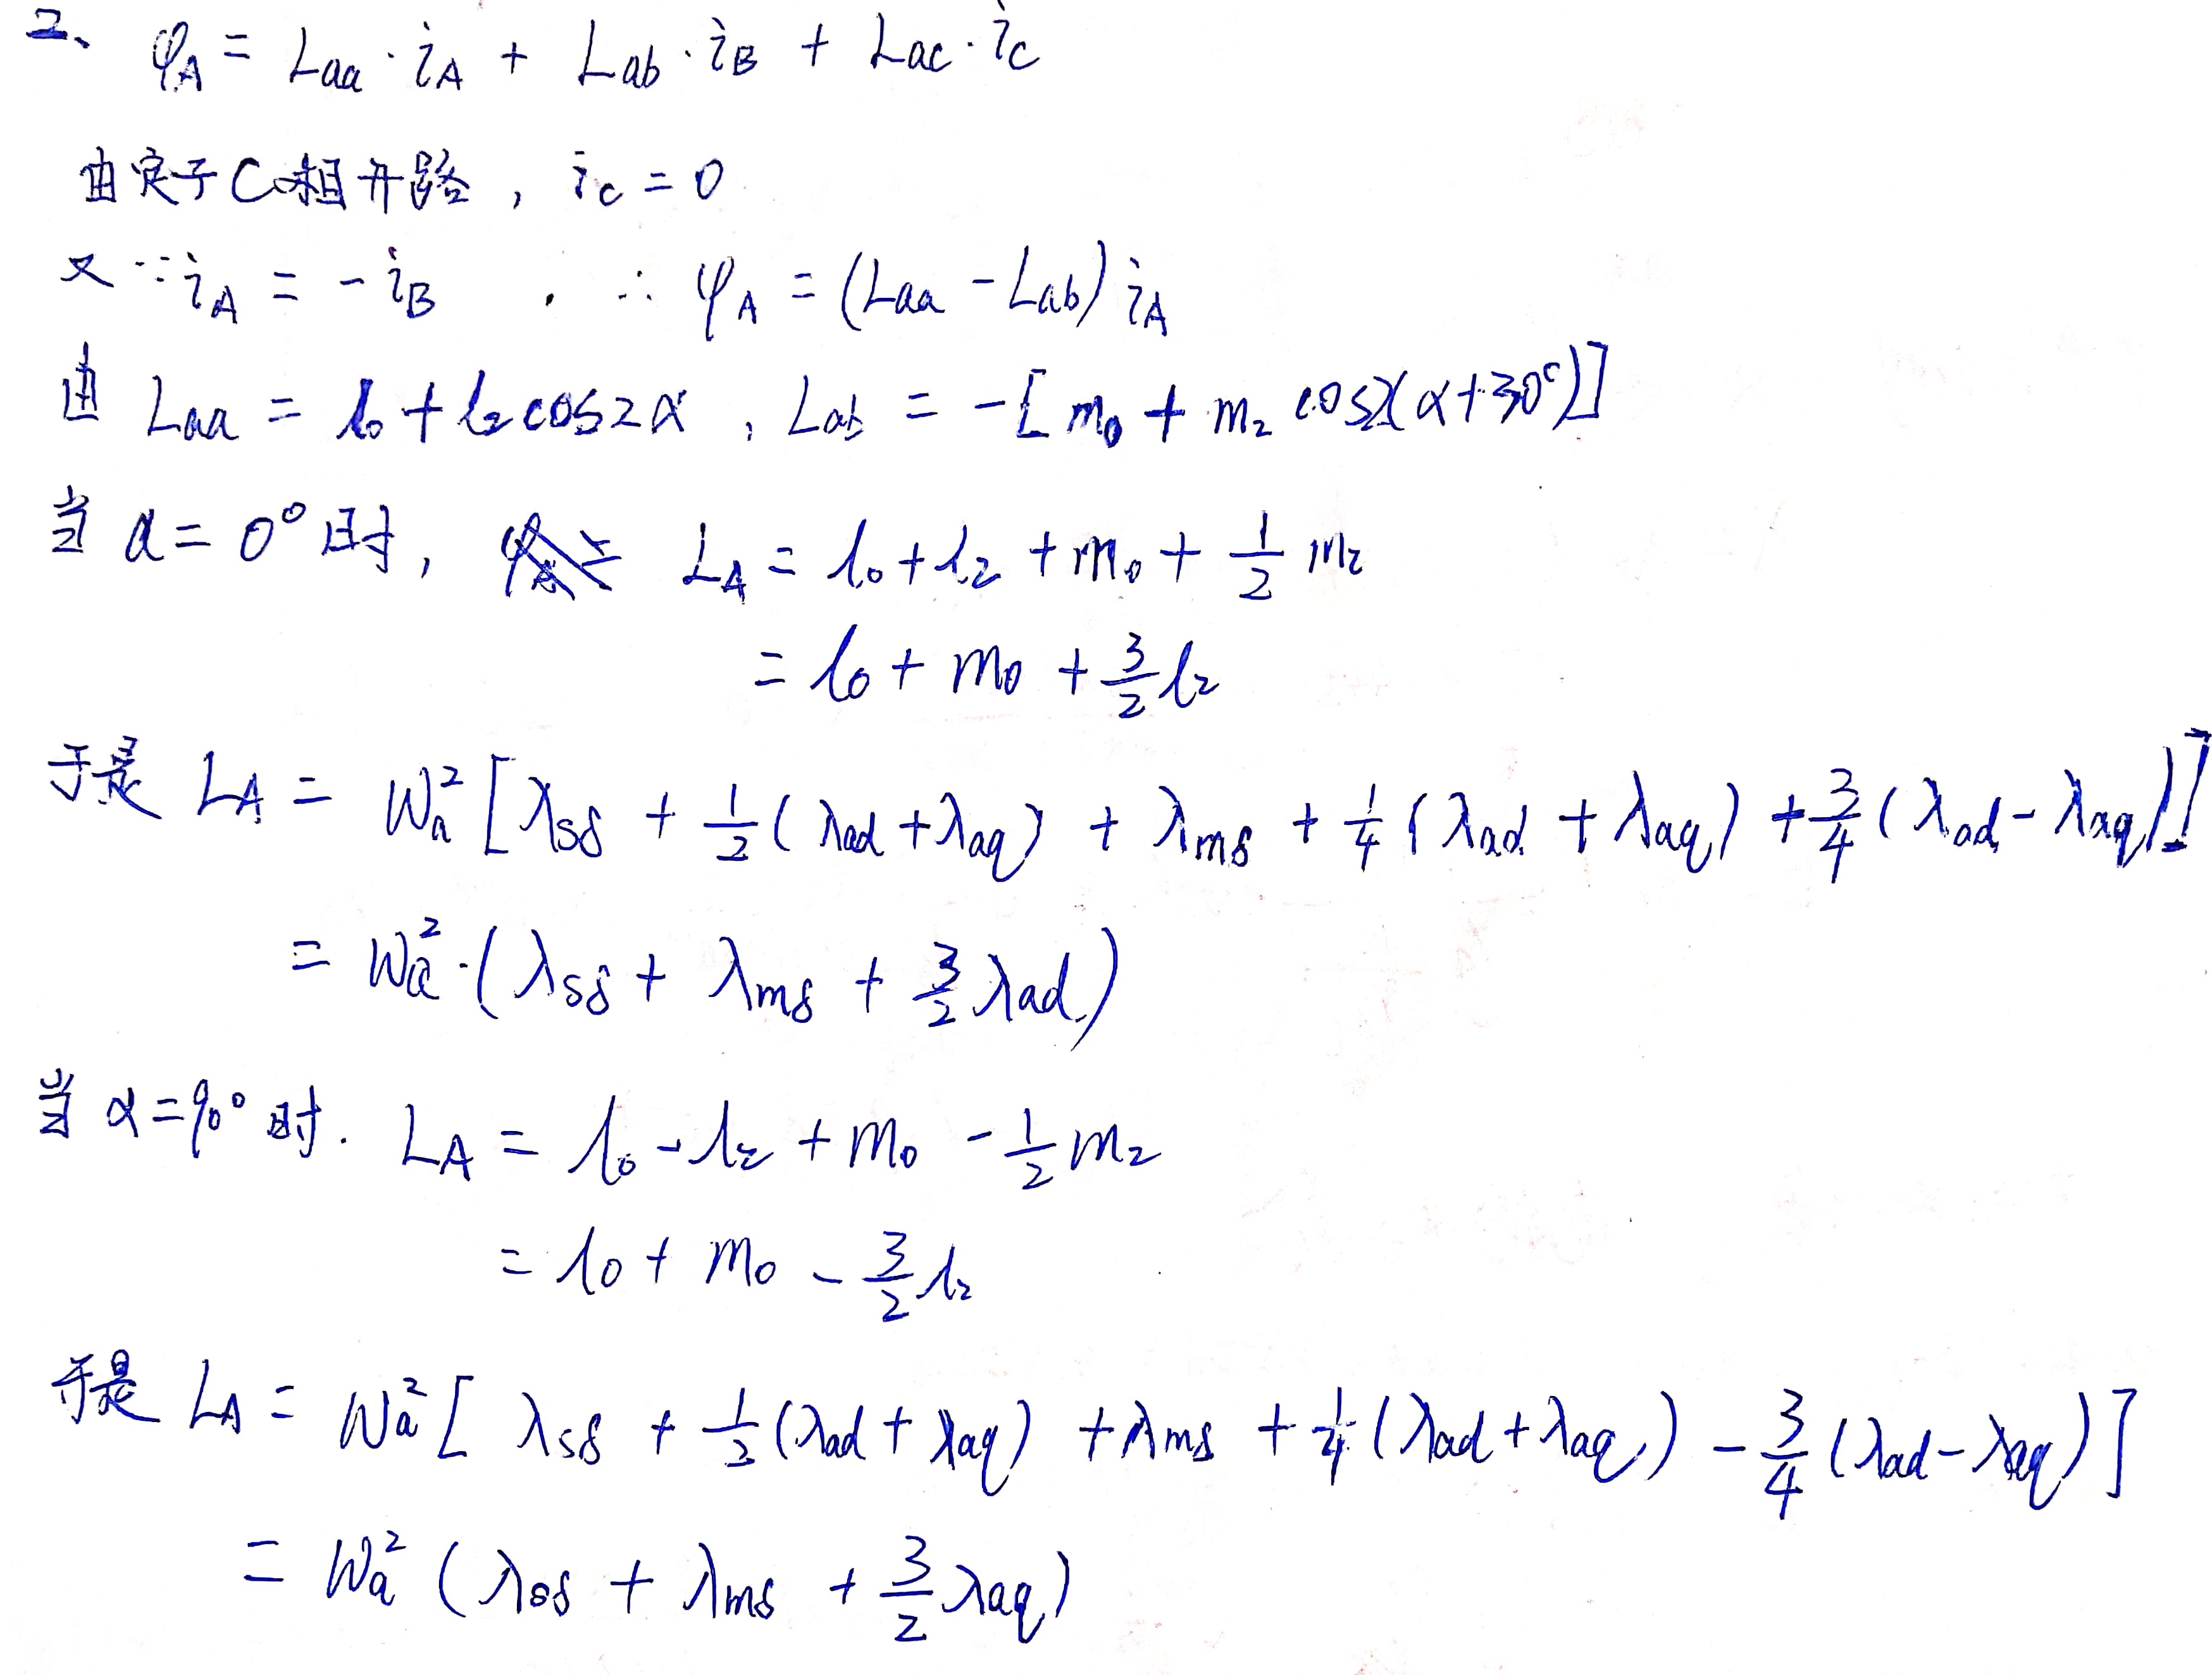 2、 φA = Laa · iA + Lab · iB + Lac · ic
由定子C相开路，ic = 0
又∵ iA = - iB . ∴ φA = (Laa - Lab) iA
由 Laa = l0 + l2 cos2α , Lab = -[m0 + m2 cos2(α+30°)]
当 α = 0° 时, LA = l0 + l2 + m0 + 1/2 m2
= l0 + m0 + 3/2 l2
于是 LA = Wa² [λsδ + 1/2 (λad + λaq) + λmδ + 1/4 (λad + λaq) + 3/4 (λad - λaq)]
= Wa² · (λsδ + λmδ + 3/2 λad)
当 α = 90° 时. LA = l0 - l2 + m0 - 1/2 m2
= l0 + m0 - 3/2 l2
于是 LA = Wa² [λsδ + 1/2 (λad + λaq) + λmδ + 1/4 (λad + λaq) - 3/4 (λad - λaq)]
= Wa² (λsδ + λmδ + 3/2 λaq)